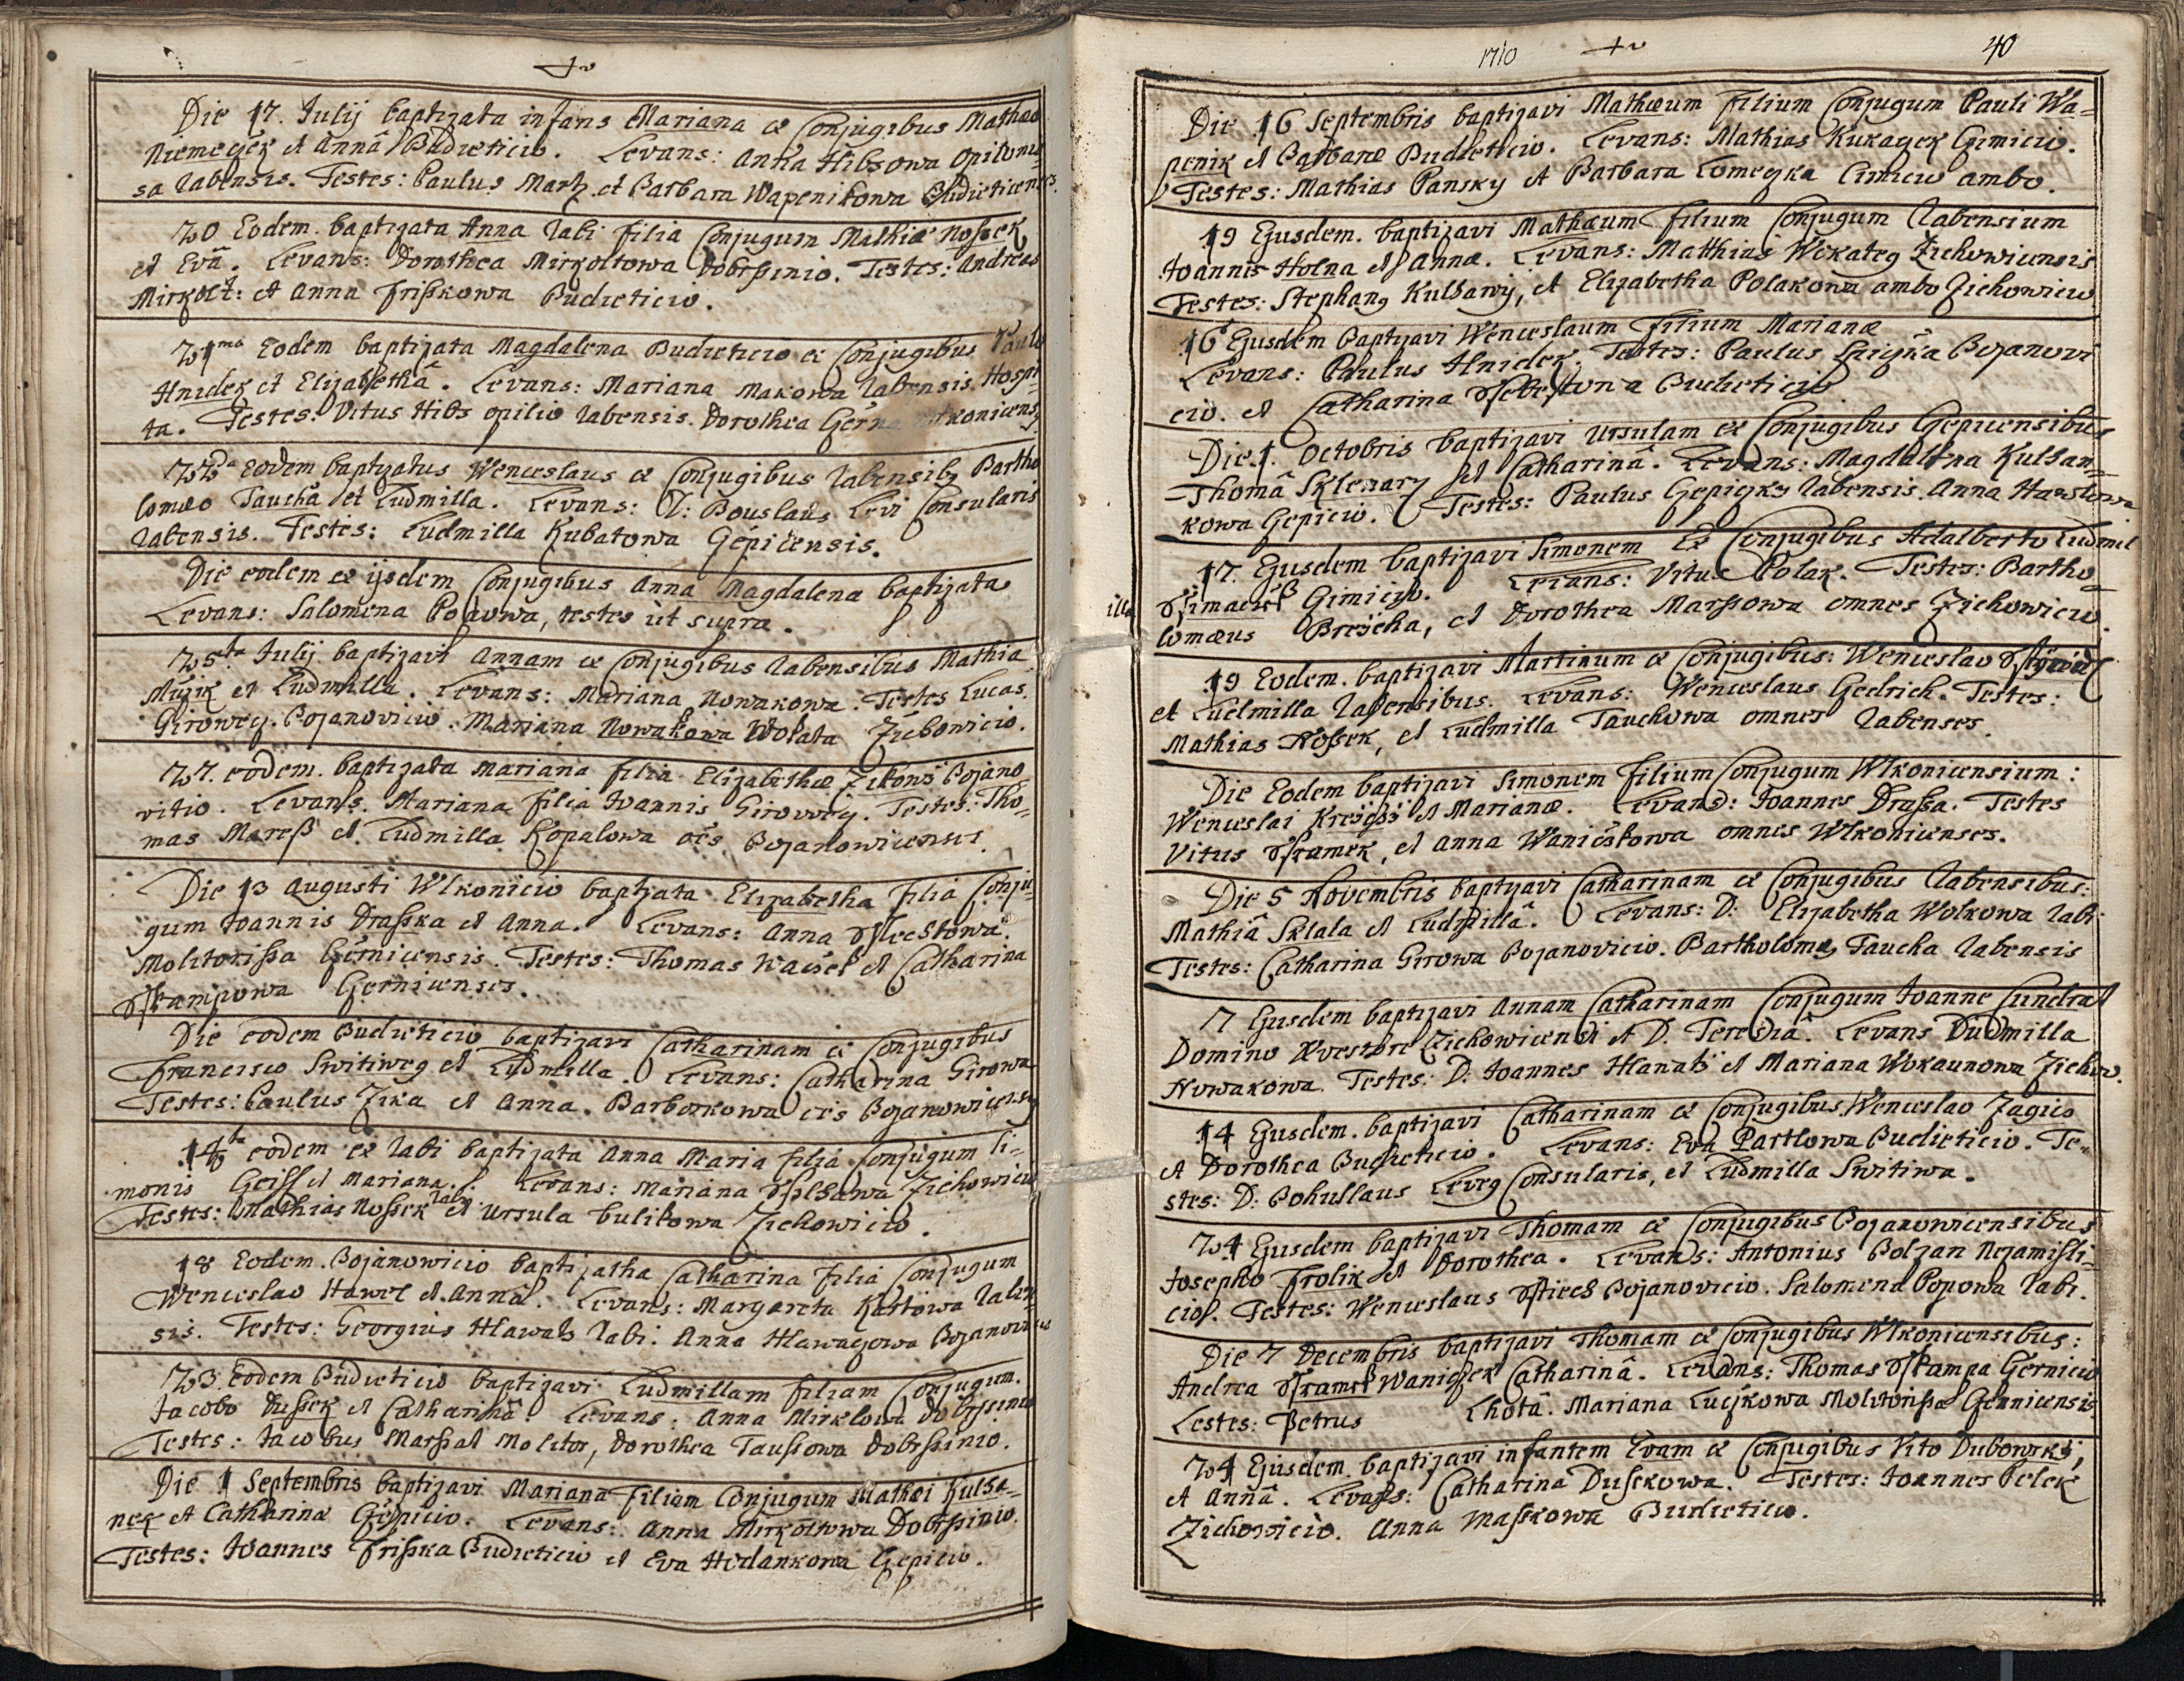 Die 17. Julij baptizata infans Mariana ex Conjugibus Mathæo
Niemeczek et Annâ Budieticio. Levans: Anna Hibsowa Opilonis=
sa Rabensis. Testes: Paulus Martz et Barbara Wapenikowa Budieticenses.
20 Eodem. baptizata Anna Rabi filia Conjugum Mathiæ Nossek
et Evâ. Levans: Dorothea Mirkoltowa Dobrssinio. Testes: Andreas
Mirkolt: et Anna Frisskowa Budieticio.
21ma Eodem baptizata Magdalena Budieticio ex Conjugibus Paulo
Hnidek et Elizabethâ. Levans: Mariana Makowa Rabensis. Hospi=
ta. Testes: Vitus Hibs opilio Rabensis. Dorothea Gerna
22da Eodem baptizatus Wenceslaus ex Conjugibus Rabensib9 Bartho
lomæo Taucha et Ludmilla. Levans: D: Bouslaus Levi Consularis
Rabensis. Testes: Ludmilla Kubatowa Gepicensis.
Die eodem ex ijsdem Conjugibus Anna Magdalena baptizata
Levans: Salomena Popowa, testes ut supra.
25ta Julij baptizavi Annam ex Conjugibus Rabensibus Mathia
Mužik et Ludmilla. Levans: Mariana Nowakowa. Testes Lucas
Giroweg. Bojanovicio. Mariana Nowakowa Wokata Zichowicio.
27. eodem. baptizata Mariana filia Elizabethæ Zikowi Bojano
vitio. Levans. Mariana filia Joannis Girowey. Testes: Tho=
mas Maress et Ludmilla Kopalowa oes Bojanowicenses.
Die 13 Augusti Wlkonicio baptizata Elizabetha filia Conju=
gum Joannis Drasska et Anna. Levans: Anna
Molitorissa Gernicensis. Testes: Thomas Waisel et Catharina
Sskampowa Gernicenses.
Die eodem Budieticio baptizavi Catharinam ex Conjugibus
Francisco Switiweg et Ludmilla. Levans: Catharina Girowa
Testes: Paulus Zika et Anna. Barborkowa oes Bojanowicenses
14ta eodem ex Rabi baptizata Anna Maria filia Conjugum Si=
monis Geiss et Mariana. Levans: Mariana Zichowicio
Testes: Mathias Nossek Rabi et Ursula bulikowa Zichowicio.
18 Eodem. Bojanowicio baptizatha Catharina filia Conjugum
Wenceslao Hawel et Annâ. Levans: Margareta Kastowa Raben=
sis. Testes: Georgius Hlawats Rabi. Anna Hlawaczowa Bojanovicio
23. Eodem Budieticio baptizavi Ludmillam filiam Conjugum.
Jacobo Dussek et Catharinâ. Levans: Anna Mirklowa Dobrssinio
Testes: Jacobus Marssal Molitor, Dorothea Taussowa Dobrssinio.
Die 1 Septembris baptizavi Mariana filiam Conjugum Mathæi Kulha=
nek et Catharinæ Gepicio. Levans: Anna Mirkoltowa Dobrssinio.
Testes: Joannes Frisska Budieticio et Eva Hodankowa Gepicio.
1710
40
Die 16 Septembris baptizavi Mathæum filium Conjugum Pauli Wa=
penik et Barbaræ Budieticio. Levans: Mathias Kukaczek Czimicio.
Testes: Mathias Pansky et Barbara Lomeczka Cimicio ambo.
19 Ejusdem. baptizavi Mathæum filium Conjugum Rabensium
Joannis Holna et Annæ. Levans: Matthias Wokateg Zichowicensis
Testes: Stephang Kulhawy, et Elizabetha Polakowa ambo Zichowicio
16 Ejusdem Baptizavi Wenceslaum filium Marianæ
Levans: Paulus Hnidek. Testes: Paulus Bojanovi
cio. et Catharina Budieticio
Die 1. Octobris baptizavi Ursulam ex Conjugibus Gepicensibus
Thomâ Sklenarz et Catharinâ. Levans: Magdalena Kulhan=
kowa Gepicio. Testes: Paulus Gepiczky Rabensis. Anna
17. Ejusdem baptizavi Simonem Ex Conjugibus Adalberto Ludmil
illa
Ssimaczek Czimicio. Levans: Vitus Polak. Testes: Bartho=
lomæus Breicha, et Dorothea Marssowa omnes Zichowicio.
19 Eodem. baptizavi Martinum ex Conjugibus: Wenceslao
et Ludmilla Rabensibus. Levans: Wenceslaus Gedrich. Testes:
Mathias Nossek, et Ludmilla Tauchowa omnes Rabenses.
Die Eodem baptizavi Simonem filium Conjugum Wlkonicensium:
Wenceslai Kreiczi et Marianæ. Levans: Joannes Drassa. Testes
Vitus Sramek, et Anna Wanicskowa omnes Wlkonicenses.
Die 5 Novembris baptizavi Catharinam ex Conjugibus Rabensibus:
Mathiâ Sklala et Ludmillâ. Levans: D: Elizabetha Wolkowa Rabi.
Testes: Catharina Girowa Bojanovicio. Bartholomæ9 Taucha Rabensis
7 Ejusdem baptizavi Annam Catharinam Conjugum Joanne Cundrat
Domino Quæstore Zichowicensi et D. Teresiâ. Levans Ludmilla
Nowakowa. Testes: D. Joannes Hlanats et Mariana Wokaunowa Zichow.
14 Ejusdem. baptizavi Catharinam ex Conjugibus Wenceslao Zagiio
et Dorothea Budieticio. Levans: Eva Partlowa Budieticio. Te=
stes: D: Bohuslaus Leveg Consularis, et Ludmilla Switiwa.
24 Ejusdem baptizavi Thomam ex Conjugibus Bojanowicensibus
Josepho Frolik et Dorothea. Levans: Antonius Bolzan Nezamisli=
cio. Testes: Wenceslaus Bojanovicio. Salomena Popowa Rabi.
Die 7 Decembris baptizavi Thomam ex Conjugibus Wlkonicensibus:
Andrea Sramek Waniczek Catharinâ. Levans: Thomas Sskampa Gernicio
Testes: Petrus Lhotâ. Mariana Luczkowa Molitorissa Gernicensis.
24 Ejusdem. baptizavi infantem Evam ex Conjugibus Vito Dubowski,
et Annâ. Levans: Catharina Dusskowa. Testes: Joannes Pelek
Zichowicio. Anna Masskowa Budieticio.